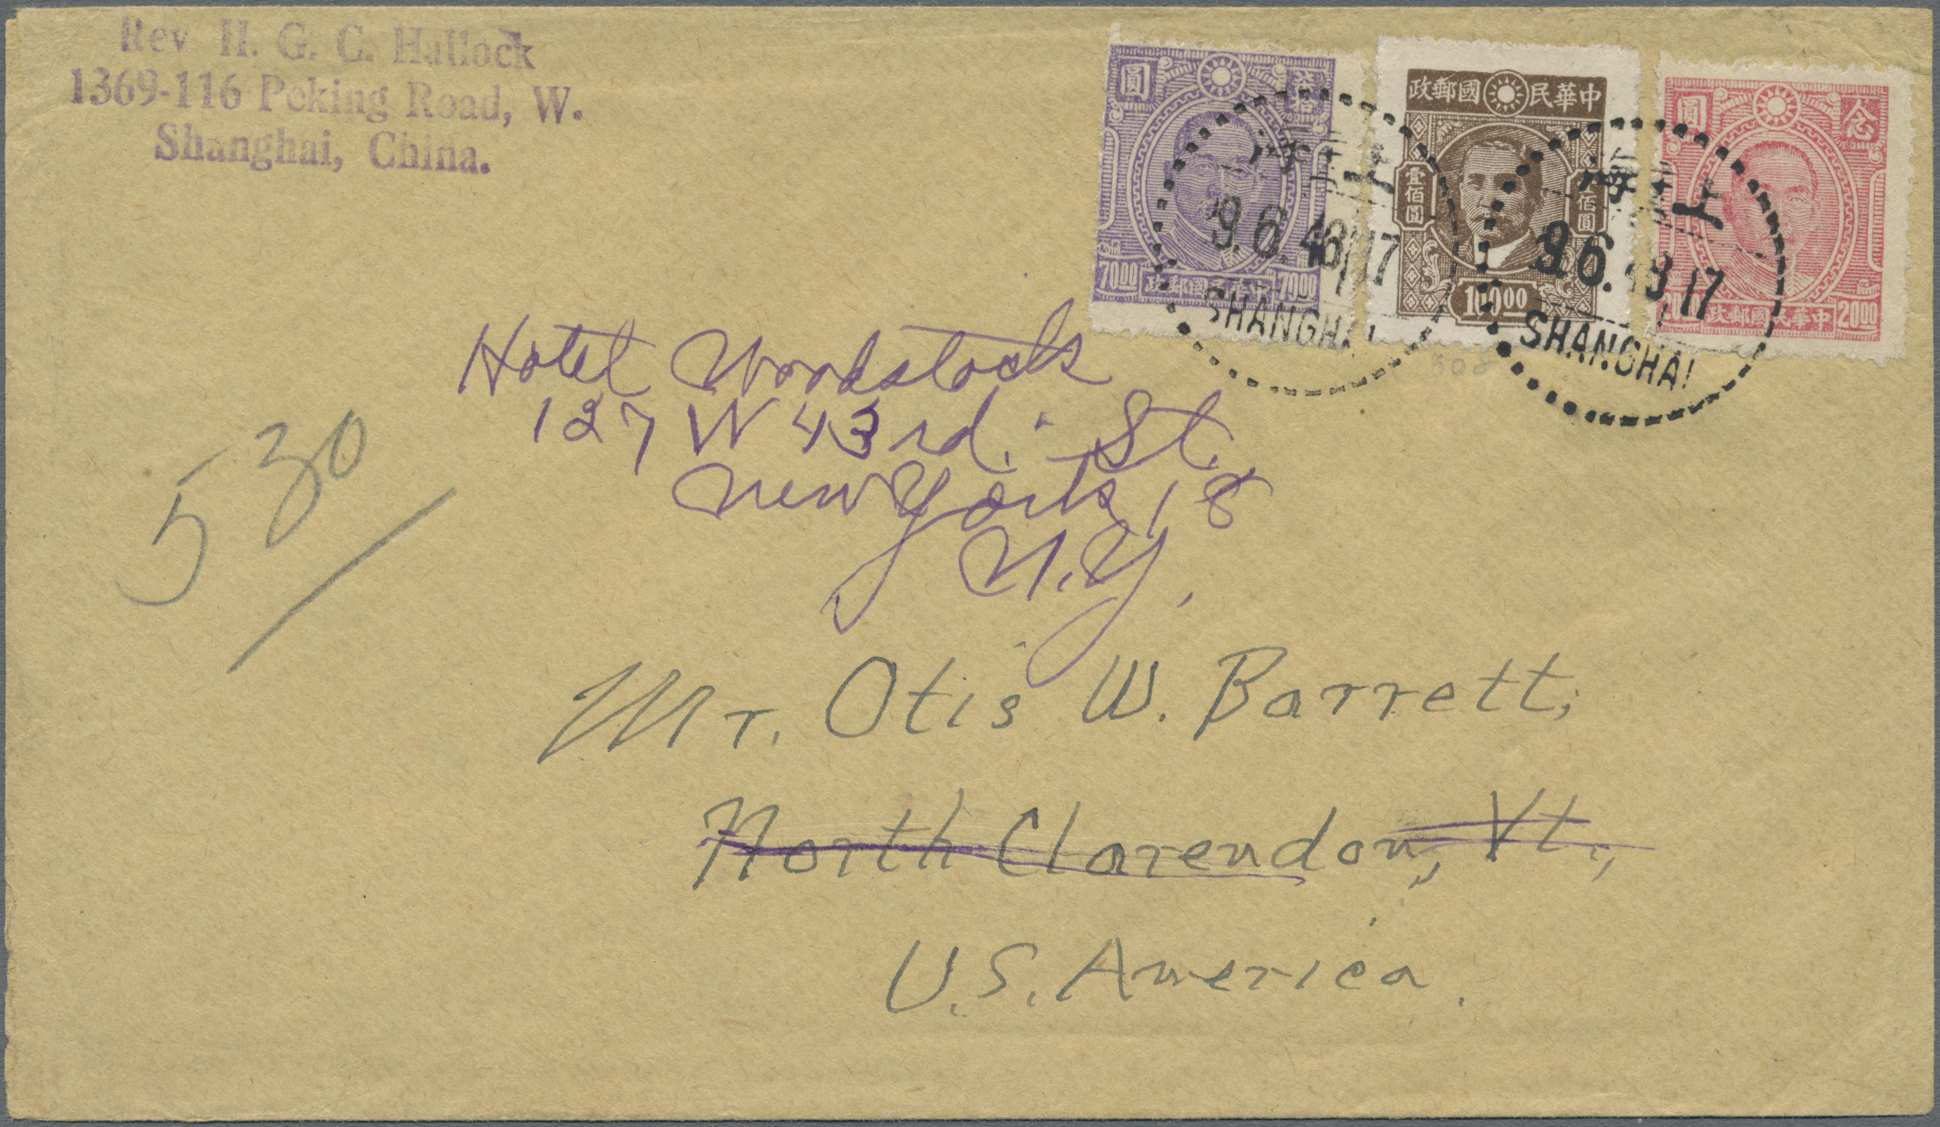 Rev H. G. C. Hallock
1369-116 Peking Road, W.
Shanghai, China.
圓
70.00 70.00
政郵國民華中
壹佰圓
佰圓
100.00
圓 念
政郵國民華中
20.00
上海
9.6.48.17
SHANGHAI
上海
9.6.48.17
SHANGHAI
Hotel Woodstock
127 W 43rd. St.
New York, 18
N.Y.
530
Mr. Otis W. Barrett,
North Clarendon, Vt.,
U.S. America.